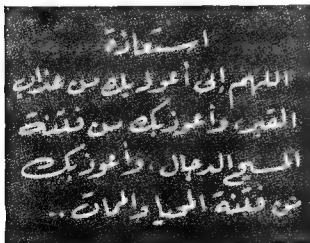 استعاذة
اللهم إنى أعوذ بك من عذاب
القبر، وأعوذ بك من فتنة
المسيح الدجال، وأعوذ بك
من فتنة المحيا والممات ..